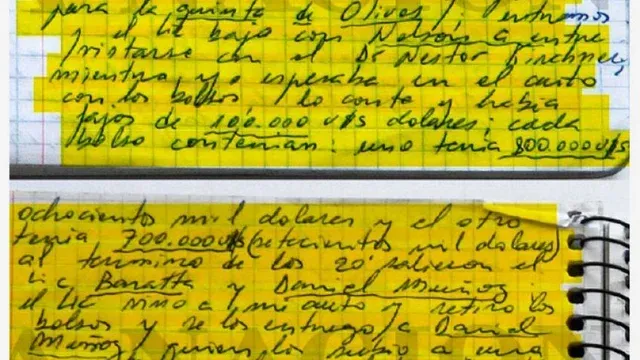 para la quinta de Olivos / : entramos
y el Lic bajo con Nelson a entre
/vistarse con el Dr Nestor Kirchner,
mientras yo esperaba en el auto
con los bolsos / lo conte y habia
fajos de 100.000 u/s dolares; cada
bolso contenian: uno tenia 800.000 u/s
ochocientos mil dolares y el otro
tenia 700.000 u/s (setecientos mil dolares)
al termino de los 20' salieron el
Lic Baratta y Daniel Muñoz
el Lic vino a mi auto y retiro los
bolsos y se los entrego / a Daniel
Muñoz / quien los subio a una